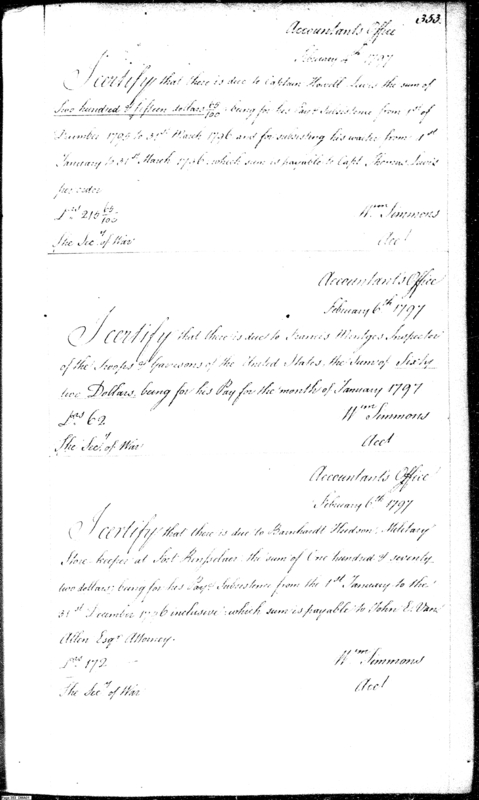 353.
Accountants Office
February 4th 1797
I certify that there is due to Captain Howell Lewis the sum of
Two hundred & fifteen dollars 65/100 being for his Pay & Subsistence from 1st of
December 1795 to 31st March 1796 and for subsisting his waiter from 1st
January to 31st March 1796, which sum is payable to Capt Thomas Lewis
per order
Drs 215 65/100
Wm Simmons
The Secy of War
Acct
Accountants Office
February 6th 1797
I certify that there is due to Francis Mentges Inspector
of the Troops & Garrisons of the United States, the Sum of Sixty
two Dollars, being for his Pay for the month of January 1797
Drs 62
Wm Simmons
The Secy of War
Acct
Accountants Office
February 6th 1797
I certify that there is due to Hudson, Military
Store keeper at Fort the sum of One hundred & seventy
two dollars; being for his Pay & Subsistence from the 1st January to the
31st December 1796 inclusive which sum is payable to John E. Van
Allen Esqr Attorney.
Drs 172
Wm Simmons
The Secy of War
Acct